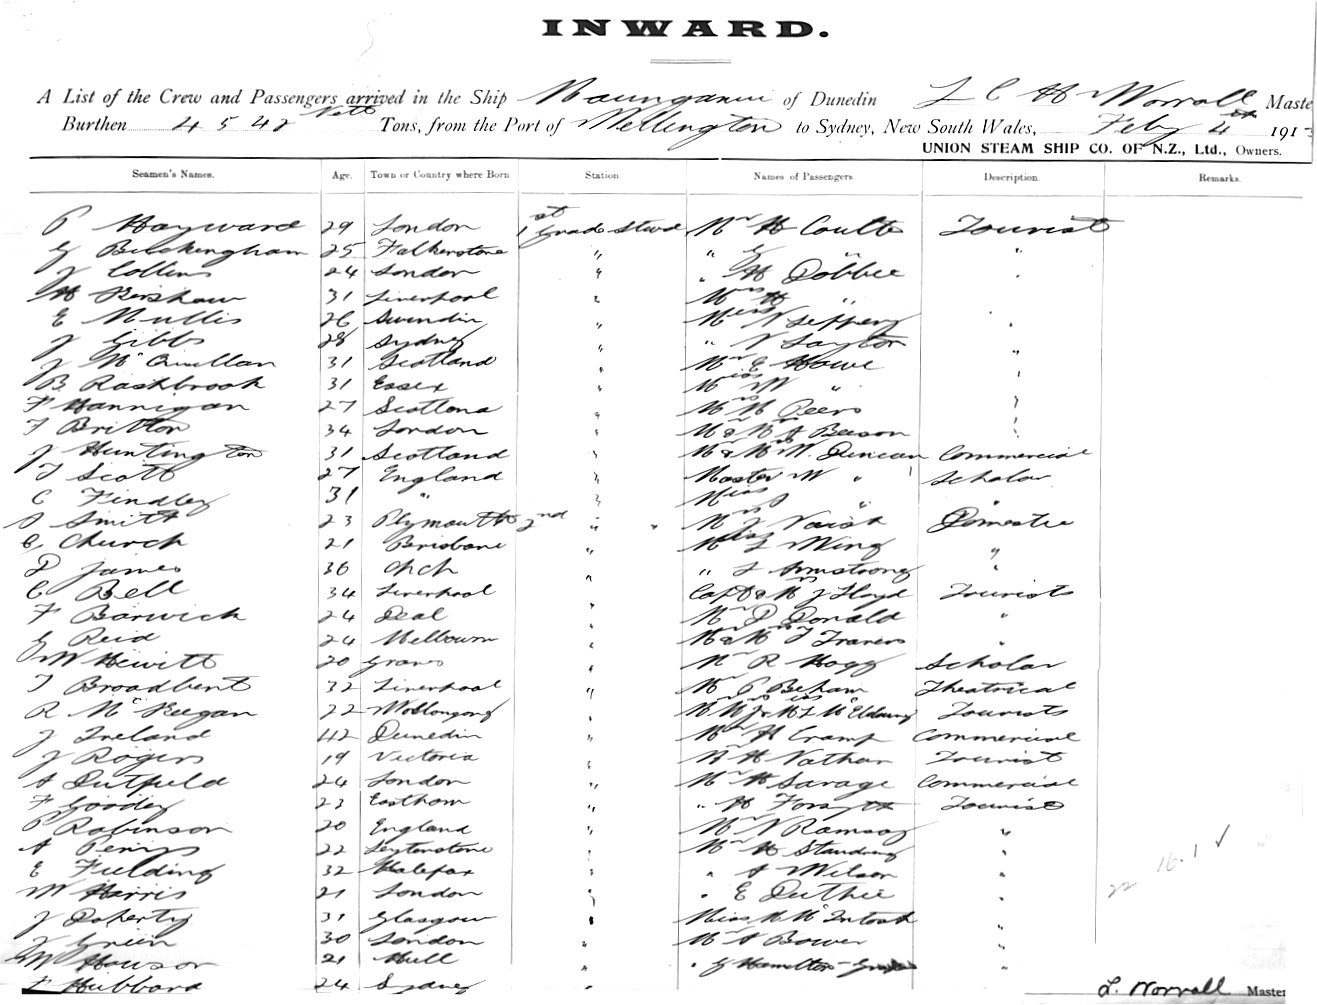 INWARD.
A List of the Crew and Passengers arrived in the Ship Maunganui of Dunedin L C H Worrall Maste
Burthen 4542 Nett Tons, from the Port of Wellington to Sydney, New South Wales, Feby 4th 191
UNION STEAM SHIP CO. OF N.Z., Ltd., Owners.
Seamen's Names. Age. Town or Country where Born Station Names of Passengers. Description. Remarks.
P Hayward 29 London 1st Grade Stwd Mr H Coulte Tourist
G Buckingham 25 Falkerstone " " G " "
J Collins 24 London " " H Dobbie
H Kershaw 31 Liverpool " Mrs H "
E Mullis 26 Swindin " Miss N Jeffery
J Gibbs 28 Sydney " " N Saytor "
J McQuillan 31 Scotland " Mr E Howe
B Rashbrook 31 Essex " Miss M " "
F Hannigan 27 Scotland " Mr W Peers "
F Britton 34 London " Mr & Mrs A Beeson "
J Huntington 31 Scotland " Mr & Mrs W Duncan Commercial
T Scott 27 England " Master W " Scholar
C Findley 31 " " Miss " "
S Smith 23 Plymouth 2nd " " Domestic
C Church 21 Brisbane " Miss L Wing "
D James 36 Chch " " L Armstrong "
C Bell 34 Liverpool " Capt & Mrs J Lloyd Tourists
F Barwick 24 Deal " Mr D Donald "
G Reid 24 Melbourn " Mr & Mrs T Travers
W Hewitt 20 " Mr R Hogg Scholar
T Broadbent 32 Liverpool " Mr P Beham Theatrical
R McKeegan 22 Wollongong " Tourists
J Ireland 42 Dunedin " Mr H Cramp Commercial
J Rogers 19 Victoria " Mr H Nathan Tourist
A Dutfield 24 London " Mr H Savage Commercial
F Goodey 23 Eastham " " H Forsyth Tourist
P Robinson 20 England " Mr N Ramsay "
A 22 Leytonstone " Mr H Standring "
E Fielding 32 Halefax " " A Wilson "
W Harris 21 London " " E Duthie "
J Doherty 31 Glasgow " Miss M McIntosh "
J Green 30 London " Mr A Bower "
W Howson 21 Hull " " G Hamilton- "
F Hubbard 24 Sydney "
22 16.1 ✓
L. Worrall Master